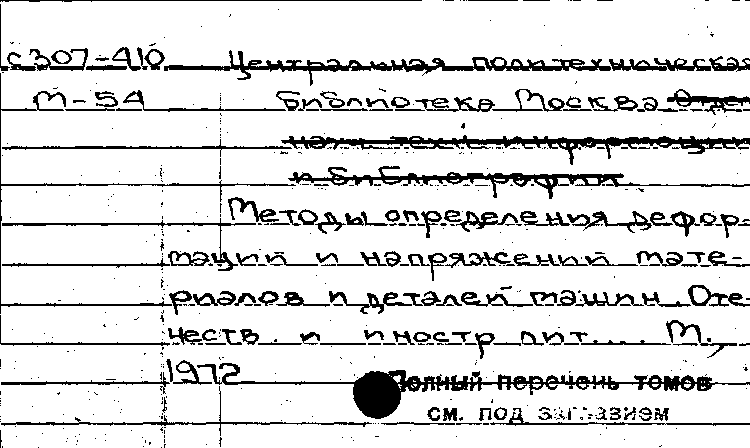 с307-410 Центральная политехническая
М-54 библиотека Москва Отдел
науч. техн информации
и библиографии.
Методы определения дефор-
маций и напряжений мате-
риалов и деталей машин. Оте-
честв. и иностр лит.... М.,
1972
Полный перечень томов
см. под заглавием